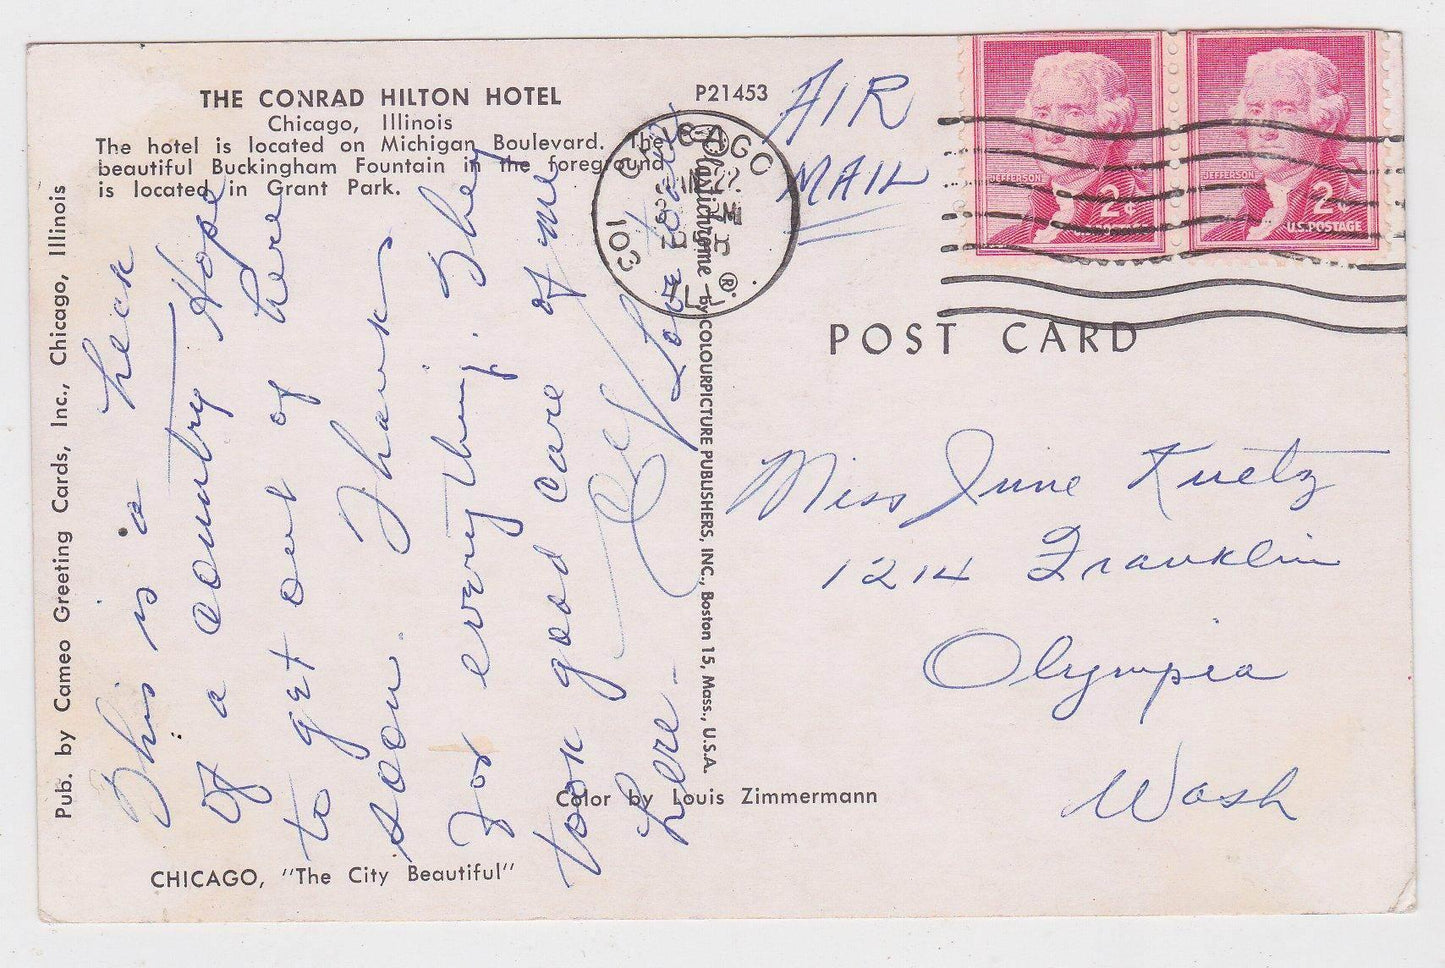 THE CONRAD HILTON HOTEL
Chicago, Illinois
The hotel is located on Michigan Boulevard. The
beautiful Buckingham Fountain in the foreground
is located in Grant Park.
P21453
AIR
MAIL
CHICAGO
103
ILL
JEFFERSON
2¢
JEFFERSON
2¢
U.S. POSTAGE
Pub. by Cameo Greeting Cards, Inc., Chicago, Illinois
This is a heck
of a country Hope
to get out of here
soon. Thanks
For everything. They
took good care of me
here.
Love
Plastichrome ® by COLOURPICTURE PUBLISHERS, INC., Boston 15, Mass., U.S.A.
POST CARD
Miss June Kuetz
1214 Franklin
Olympia
Wash
Color by Louis Zimmermann
CHICAGO, "The City Beautiful"